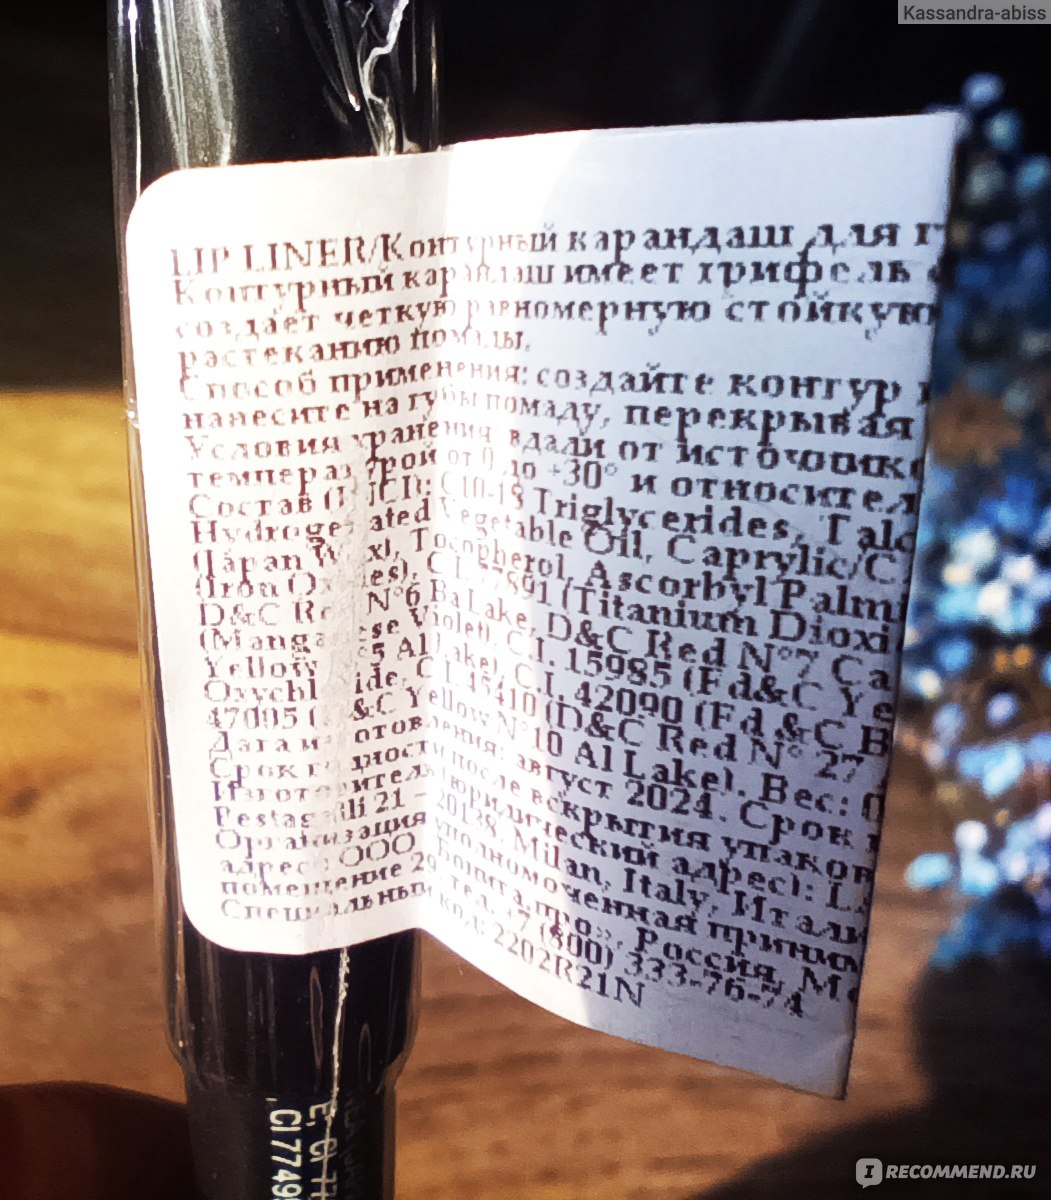 Kassandra-abiss
LIP LINER/Контурный карандаш для г
Контурный карандаш имеет грифель
создаёт четкую равномерную стойкую
растеканию помады.
Способ применения: создайте контур
нанесите на губы помаду, перекрывая
Условия хранения вдали от источнико
температурой от 0 до +30° и относител
Состав (INCI): C10-18 Triglycerides, Talc
Hydrogenated Vegetable Oil, Caprylic/C
(Japan Wax), Tocopherol, Ascorbyl Palmi
(Iron Oxides), C.I. 77891 (Titanium Dioxi
D&C Red N°6 Ba Lake, D&C Red N°7 Ca
(Manganese Violet), C.I. 15985 (Fd&C Ye
Yellow N°5 Al Lake), C.I. 42090 (Fd &C B
Oxychloride, C.I. 45410 (D&C Red N° 27
47005 (D&C Yellow N°10 Al Lake). Вес: 0
Дата изготовления: август 2024. Срок
Срок годности после вскрытия упаков
Изготовитель (юридический адрес): L.
Pestagalli 21 – 20138, Milan, Italy, Итали
Организация уполномоченная приним
адрес: ООО «Бонита.про», Россия, Мо
помещение 29, тел. +7 (800) 333-76-74
Специальный код: 2202R21N
CI7749
IRECOMMEND.RU